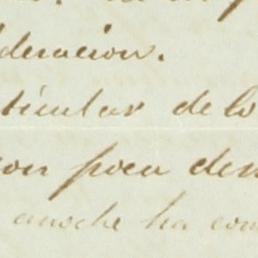 deracion.
ticular de lo
con poca den
anoche ha com